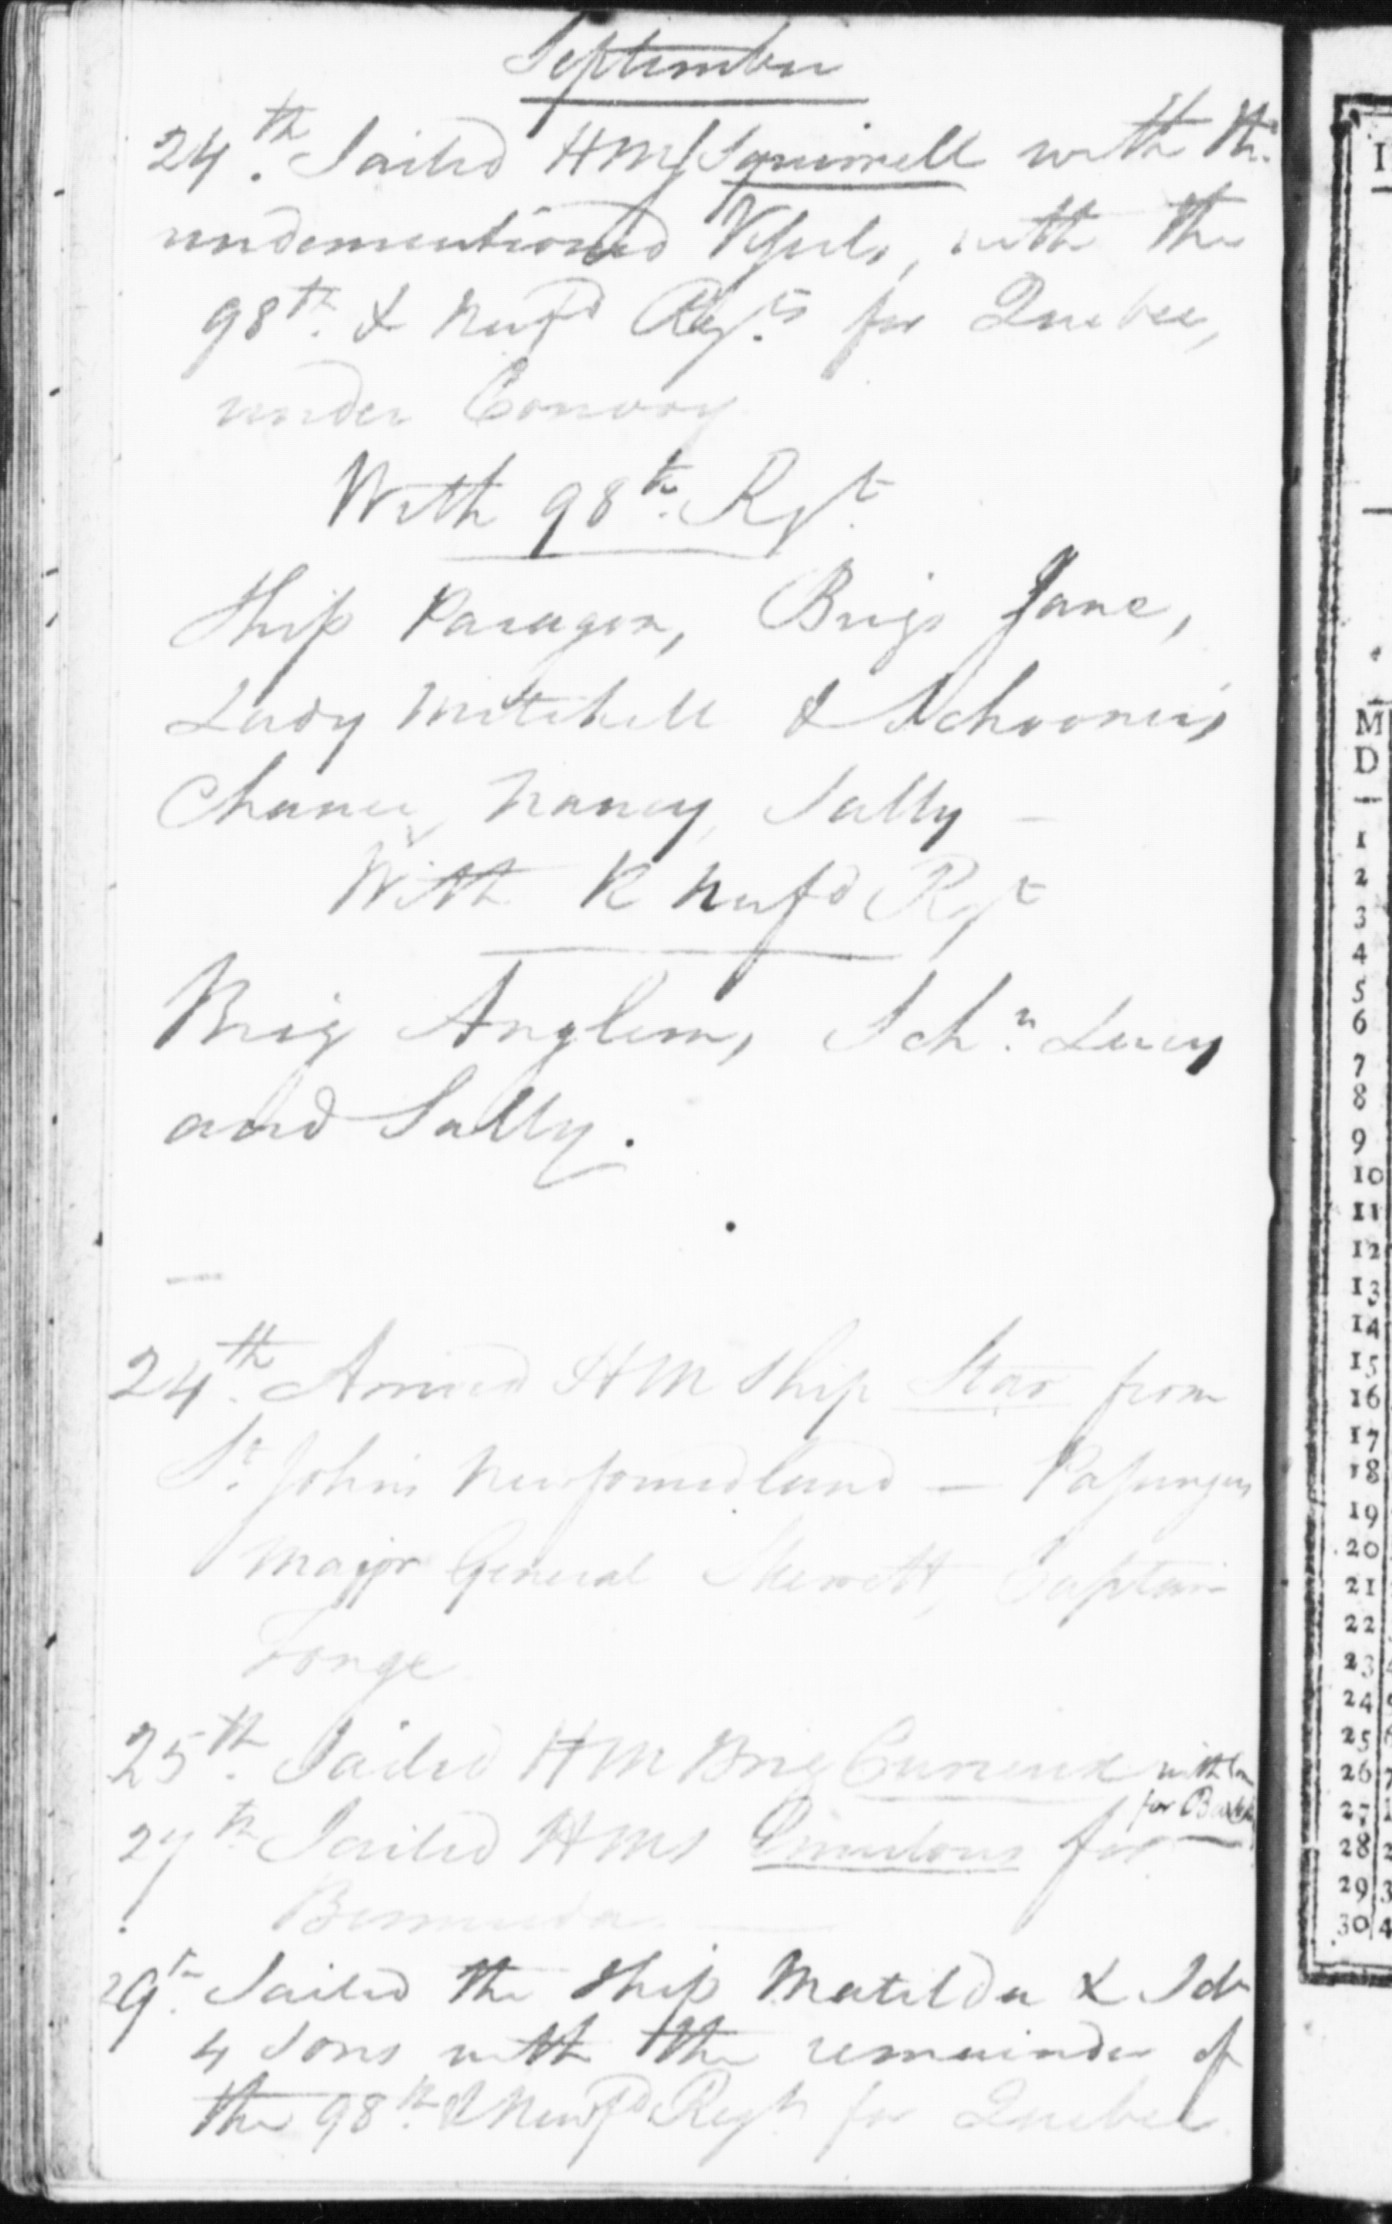 September
24th. Sailed HMS Squirrell with the
undermentioned Vessels, with the
98th. & Newfd Regts for Quebec,
under Convoy
With 98th. Regt.
Ship Paragon, Brigs Jane,
Lady Mitchell & Schooners
Chance, Nancy, Sally –
With R Newfd Regt
Brig Anglem, Schn. Lucy
and Sally.
24th. Arrived HM Ship Star from
St. Johns Newfoundland — Passengers
Major General Skerrett, Captain
Tonge
25th. Sailed HM Brig Curieux with
for
27th Sailed HMS Emulous for
Bermuda
29th. Sailed the Ship Matilda & Sch
4 Sons with the remainder of
the 98th. & Newfd Regts for Quebec
I
M
D
1
2
3
4
5
6
7
8
9
10
11
12
13
14
15
16
17
18
19
20
21
22
23
24
25
26
27
28
29
30